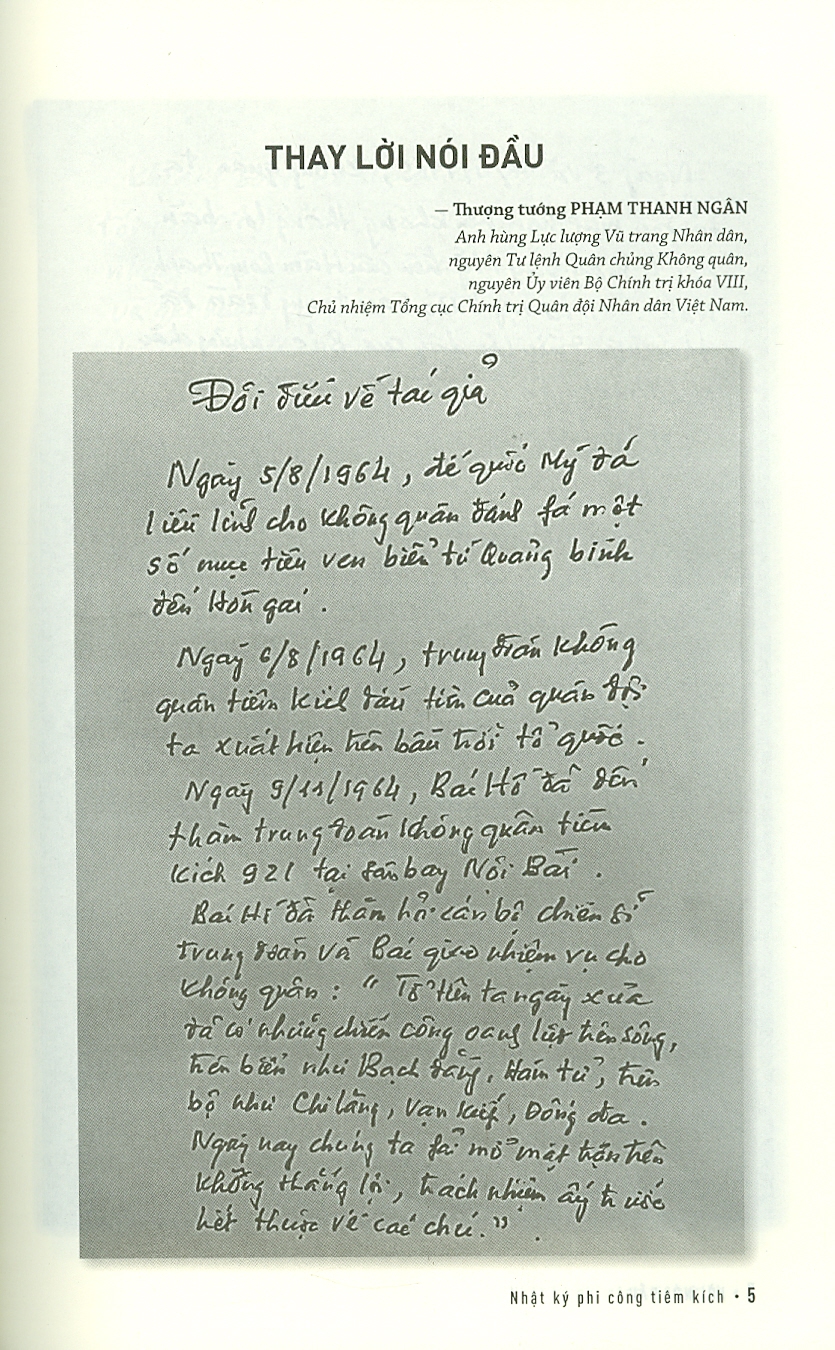 THAY LỜI NÓI ĐẦU
— Thượng tướng PHẠM THANH NGÂN
Anh hùng Lực lượng Vũ trang Nhân dân,
nguyên Tư lệnh Quân chủng Không quân,
nguyên Ủy viên Bộ Chính trị khóa VIII,
Chủ nhiệm Tổng cục Chính trị Quân đội Nhân dân Việt Nam.
Đôi điều về tác giả
Ngày 5/8/1964, đế quốc Mỹ đã
liều lĩnh cho không quân đánh fá một
số mục tiêu ven biển từ Quảng bình
đến Hòn gai.
Ngày 6/8/1964, trung đoàn không
quân tiêm kích đầu tiên của quân đội
ta xuất hiện trên bầu trời tổ quốc.
Ngày 9/11/1964, Bác Hồ đã đến
thăm trung đoàn không quân tiêm
kích 921 tại sân bay Nội Bài.
Bác Hồ đã thăm hỏi cán bộ chiến sĩ
trung đoàn và Bác giao nhiệm vụ cho
không quân: "Tổ tiên ta ngày xưa
đã có những chiến công oanh liệt trên sông,
trên biển như Bạch đằng, Hàm tử, trên
bộ như Chi lăng, Vạn kiếp, Đống đa.
Ngày nay chúng ta fải mở mặt trận trên
không thắng lợi, trách nhiệm ấy trước
hết thuộc về các chú."
Nhật ký phi công tiêm kích • 5